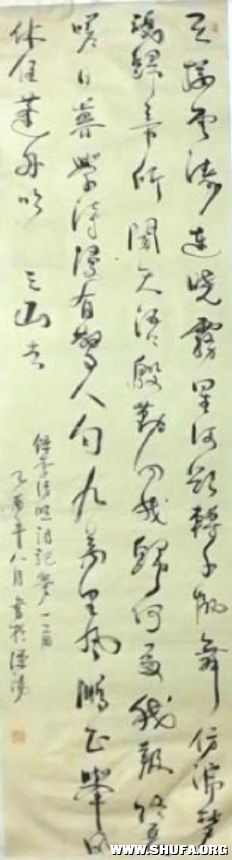 天接雲濤連曉霧星河欲轉千帆舞仿佛夢
魂歸帝所聞天語殷勤問我歸何處我報路長
嗟日暮學詩謾有驚人句九萬里風鵬正舉風
休住蓬舟吹三山去
李清照詞記夢一首
乙酉年八月書於
WWW.SHUFA.ORG